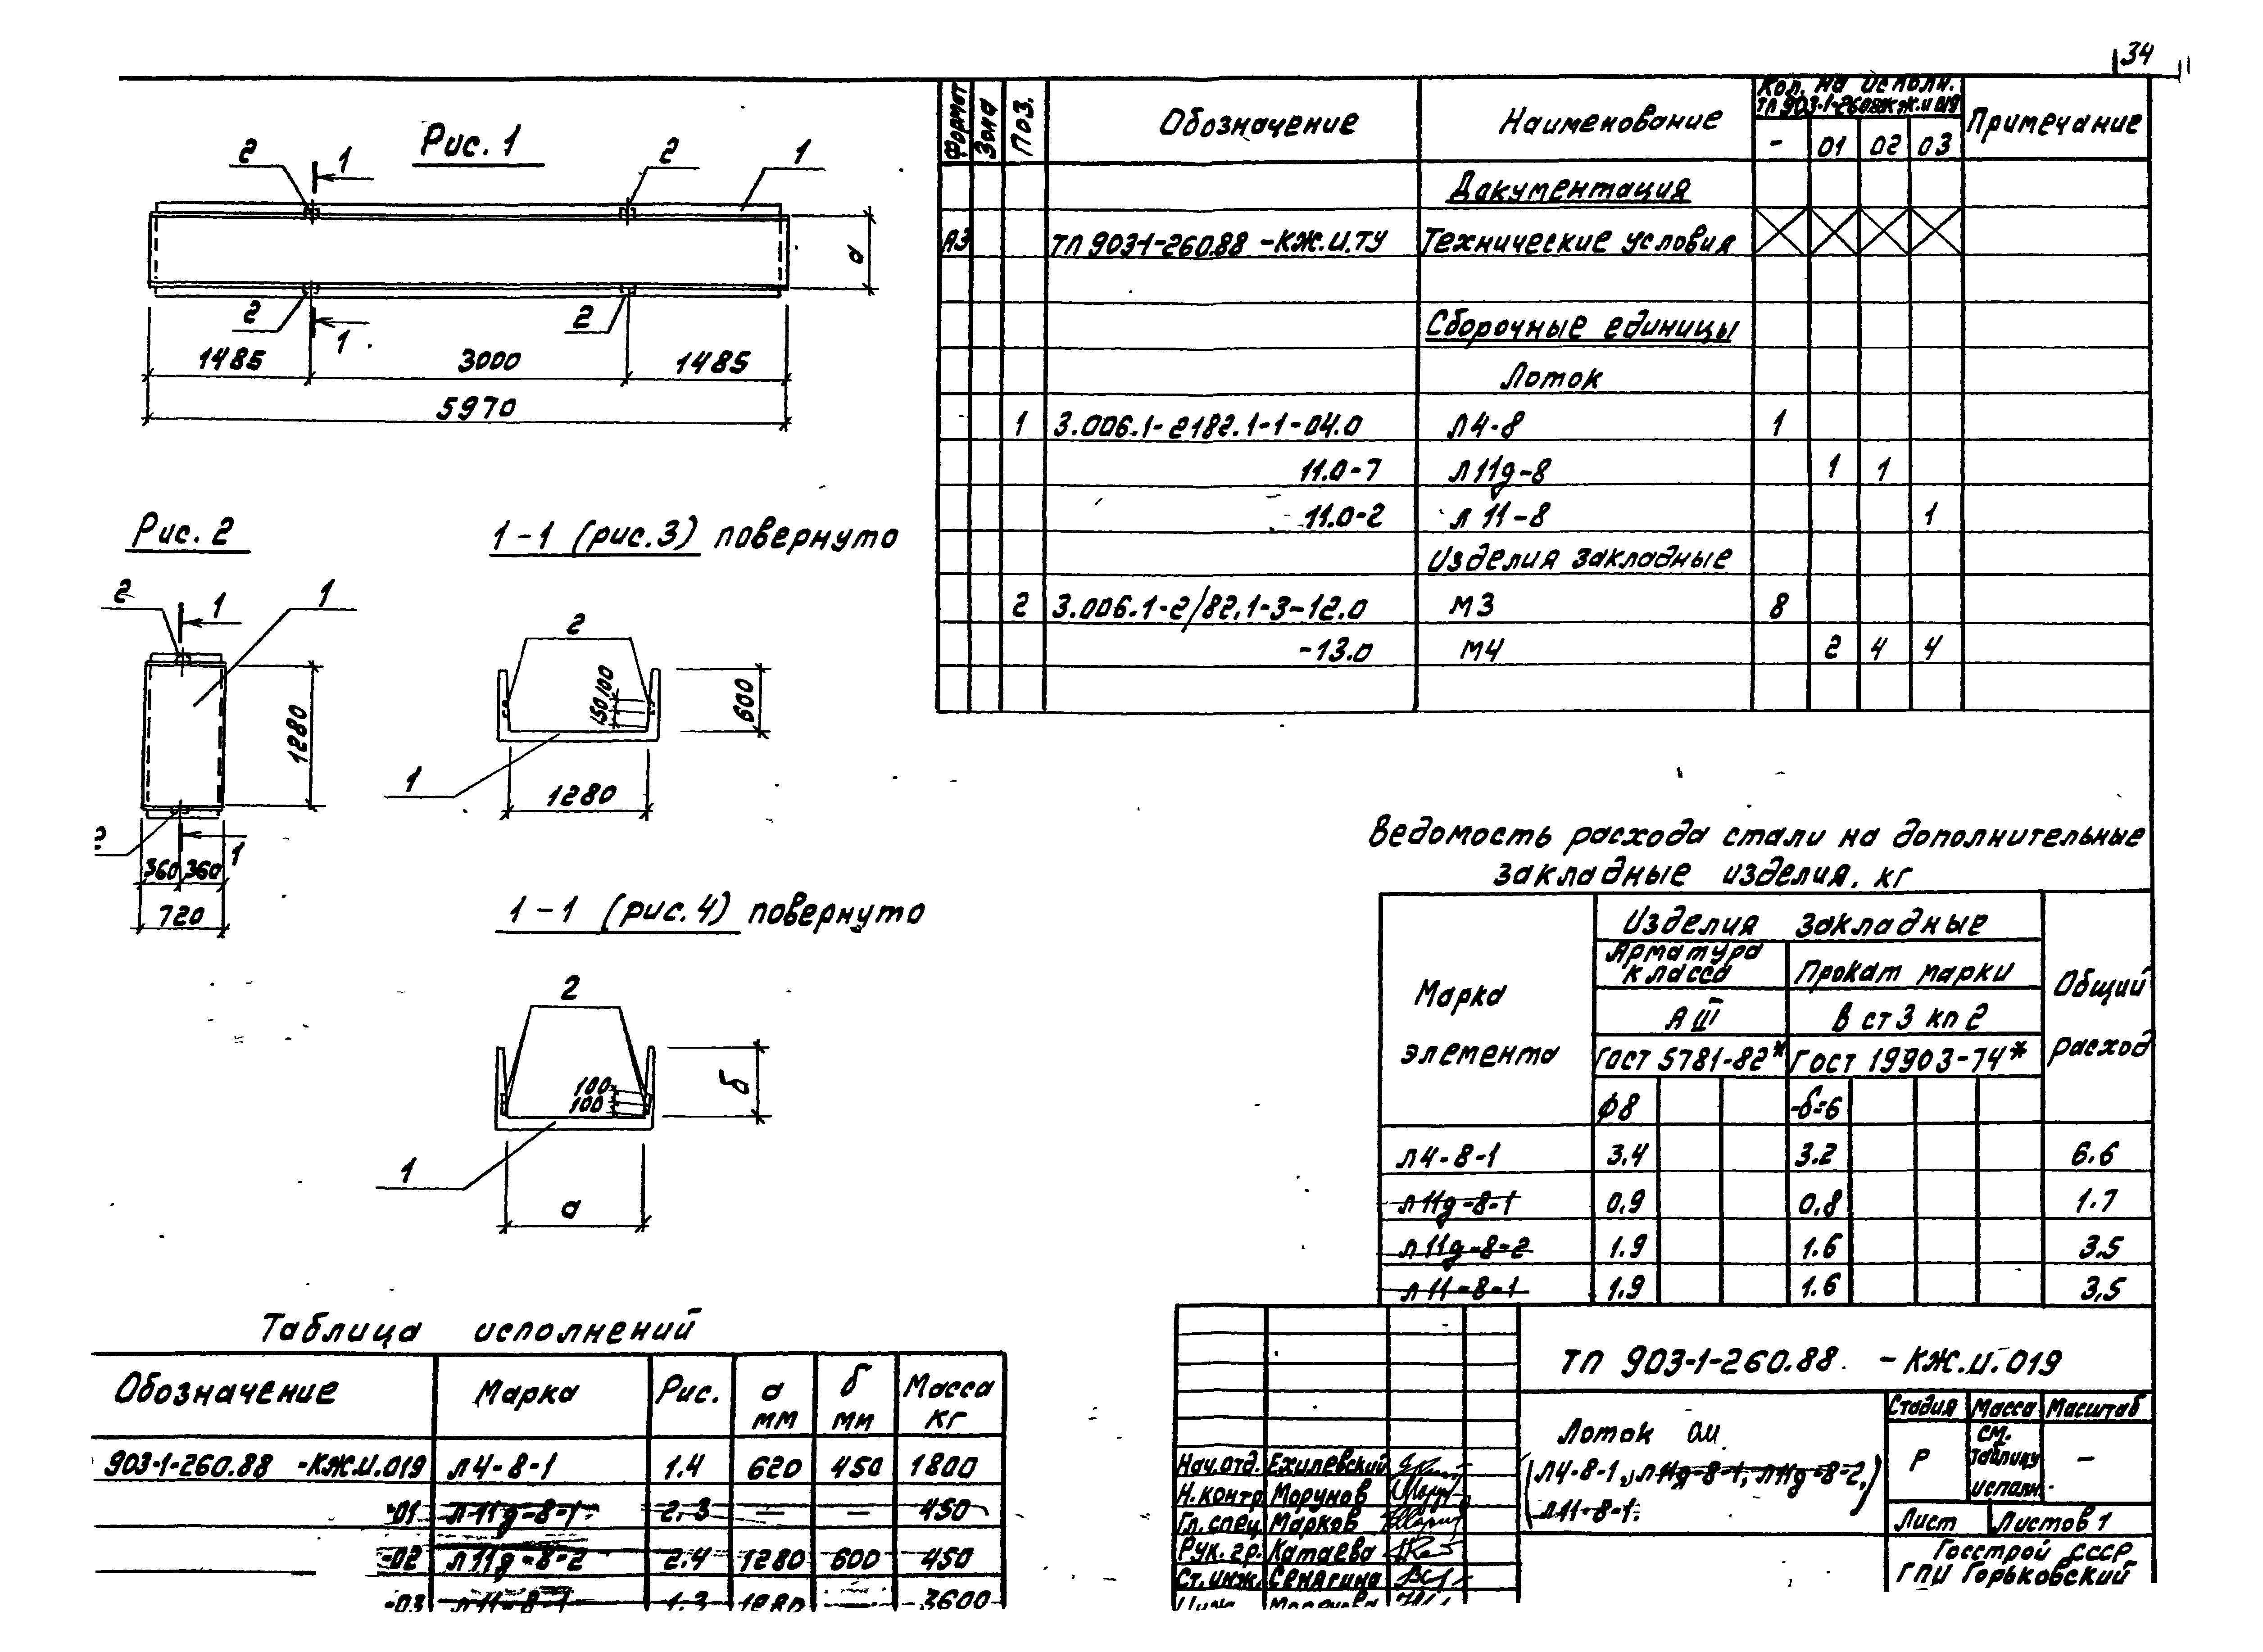 34
Рис. 1
2 1 2 1
а
2 1 2
1485 3000 1485
5970
Рис. 2
2 1 1
1280
2 1
360 360
720
1-1 (рис.3) повернуто
2
150 100
600
1
1280
1-1 (рис.4) повернуто
2
100
100
б
1
а
Формат Зона Поз. Обозначение Наименование Кол. на исполн. Примечание
ТП 903-1-260.88КЖ.И 019
- 01 02 03
Документация
А3 ТП 903-1-260.88 -КЖ.И.ТУ Технические условия
Сборочные единицы
Лоток
1 3.006.1-2182.1-1-04.0 Л4-8 1
11.0-7 Л11д-8 1 1
-11.0-2 Л 11-8 1
Изделия закладные
2 3.006.1-2/82.1-3-12.0 М3 8
-13.0 М4 2 4 4
Ведомость расхода стали на дополнительные
закладные изделия, кг
Марка элемента
Изделия закладные
Общий расход
Арматура класса
Прокат марки
А III
В ст 3 кп 2
Гост 5781-82*
Гост 19903-74*
ϕ8 -δ=6
Л4-8-1 3.4 3.2 6.6
Л11д-8-1 0.9 0.8 1.7
Л11д-8-2 1.9 1.6 3.5
Л11-8-1 1.9 1.6 3.5
Таблица исполнений
Обозначение Марка Рис. а мм б мм Масса кг
903-1-260.88 -КЖ.И.019 Л4-8-1 1.4 620 450 1800
-01 Л11д-8-1 2.3 — — 450
-02 Л11д-8-2 2.4 1280 600 450
-03 Л11-8-1 1.3 1280 — 3600
ТП 903-1-260.88 -КЖ.И.019
Лоток
(Л4-8-1, Л11д-8-1, Л11д-8-2,
Л11-8-1)
Стадия Масса Масштаб
Р см. таблицу исполн. —
Лист Листов 1
Госстрой СССР
ГПИ Горьковский
Нач.отд. Ехилевский
Н.контр Морунов
Гл.спец Марков
Рук. гр. Катаева
Ст.инж. Сенягина